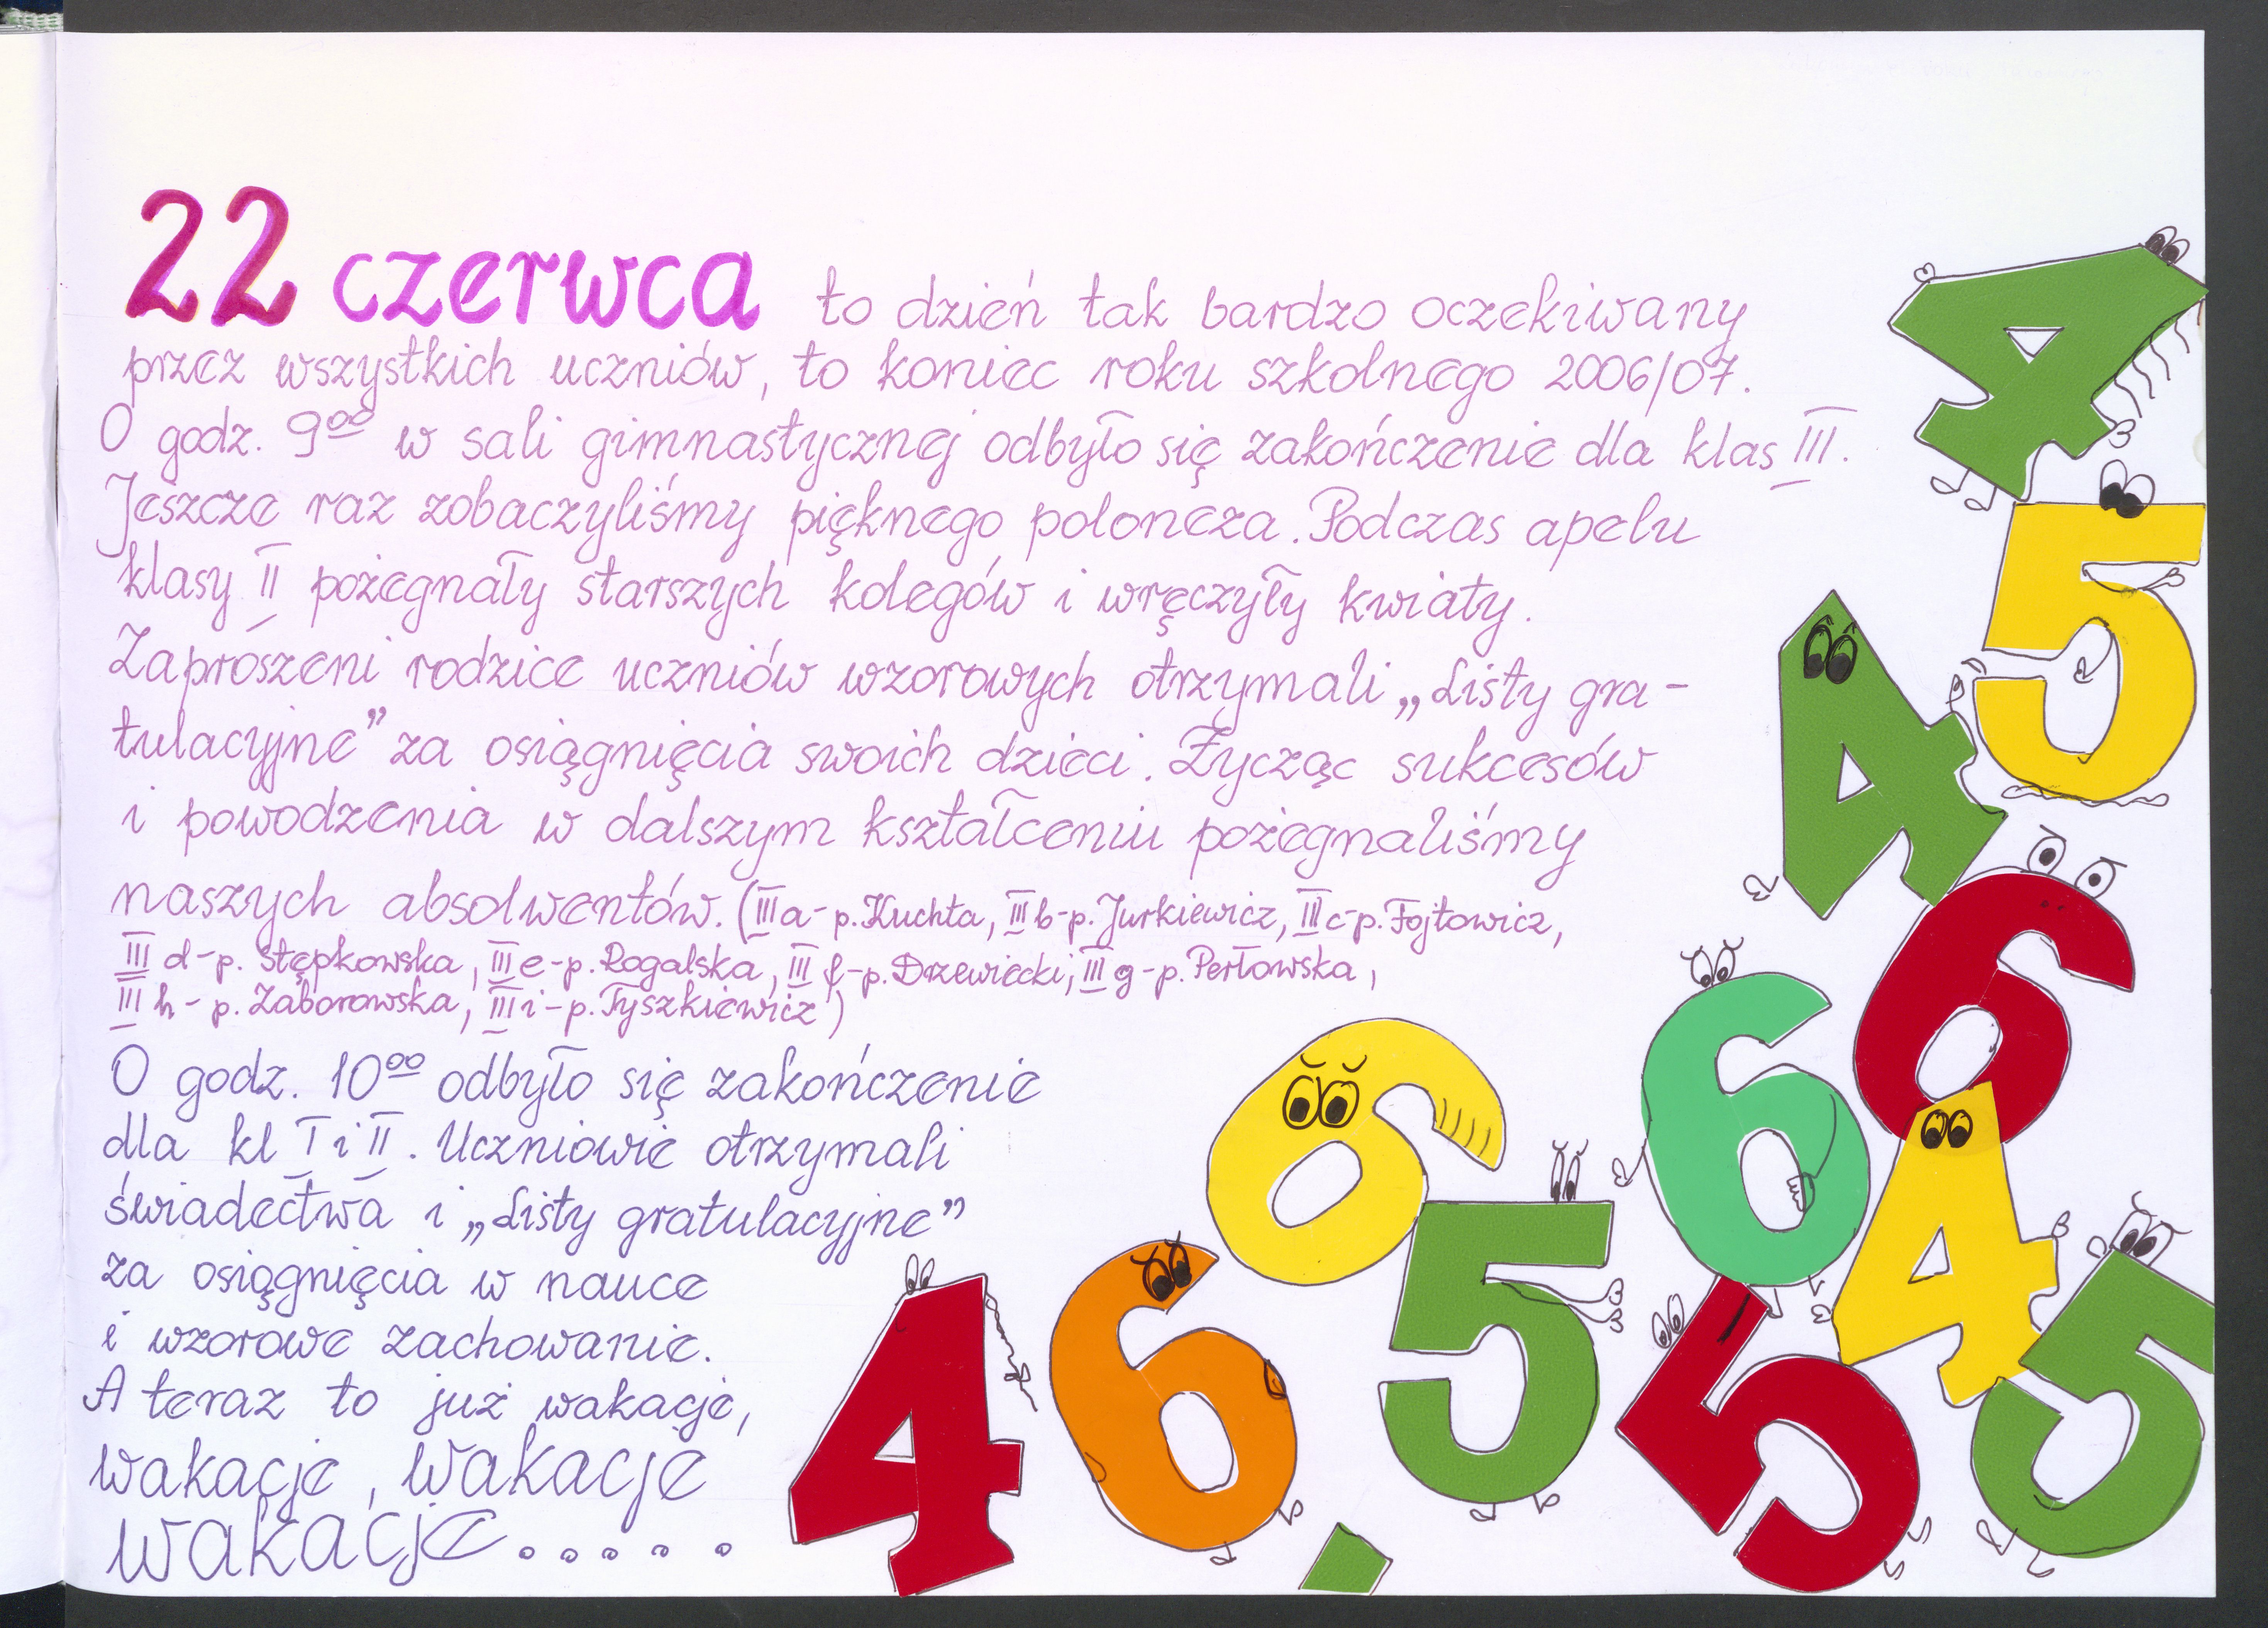 22 czerwca to dzień tak bardzo oczekiwany
przez wszystkich uczniów, to koniec roku szkolnego 2006/07.
O godz. 9⁰⁰ w sali gimnastycznej odbyło się zakończenie dla klas III.
Jeszcze raz zobaczyliśmy pięknego poloneza. Podczas apelu
klasy II pożegnały starszych kolegów i wręczyły kwiaty.
Zaproszeni rodzice uczniów wzorowych otrzymali „Listy gra-
tulacyjne” za osiągnięcia swoich dzieci. Życząc sukcesów
i powodzenia w dalszym kształceniu pożegnaliśmy
naszych absolwentów. (III a - p. Kuchta, III b - p. Jurkiewicz, III c - p. Fojtowicz,
III d - p. Stępkowska, III e - p. Rogalska, III f - p. Drzewiecki, III g - p. Perłowska,
III h - p. Zaborowska, III i - p. Tyszkiewicz)
O godz. 10⁰⁰ odbyło się zakończenie
dla kl I i II. Uczniowie otrzymali
świadectwa i „Listy gratulacyjne”
za osiągnięcia w nauce
i wzorowe zachowanie.
A teraz to już wakacje,
wakacje, wakacje
wakacje.....
4
5
4
6
6
6
4
5
5
6
4
5